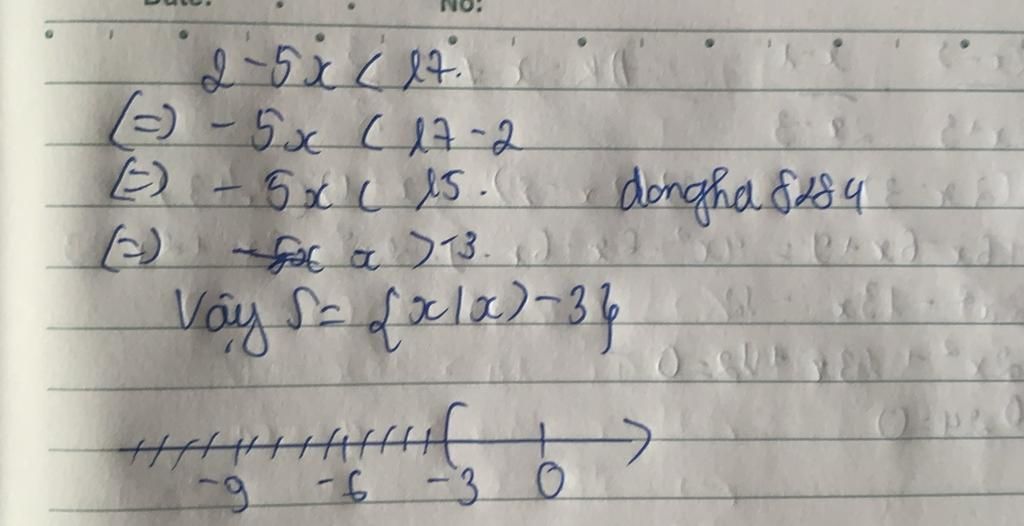 No:
2 - 5x < 17.
(=) - 5x < 17 - 2
(=) - 5x < 15. dongha 8284
(=) x > -3.
Vậy S = {x | x > -3}
-9 -6 -3 0